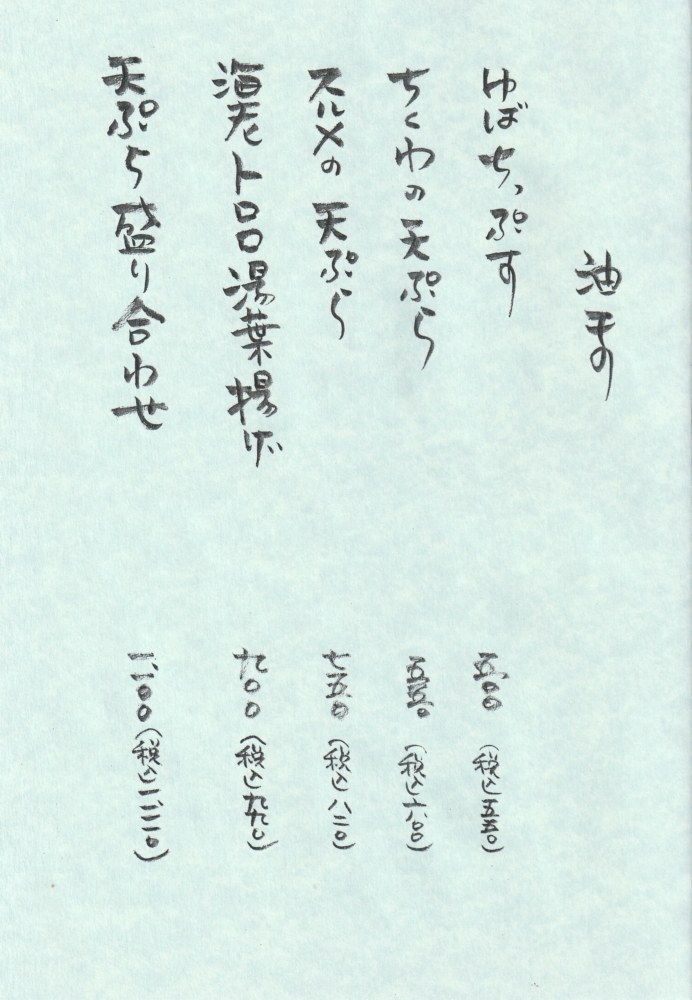 油もの
ゆばちっぷす 五〇〇（税込五五〇）
ちくわの天ぷら 五五〇（税込六〇〇）
スルメの天ぷら 七五〇（税込八二〇）
海老トロロ湯葉揚げ 九〇〇（税込九九〇）
天ぷら盛り合わせ 一、一〇〇（税込一、二一〇）